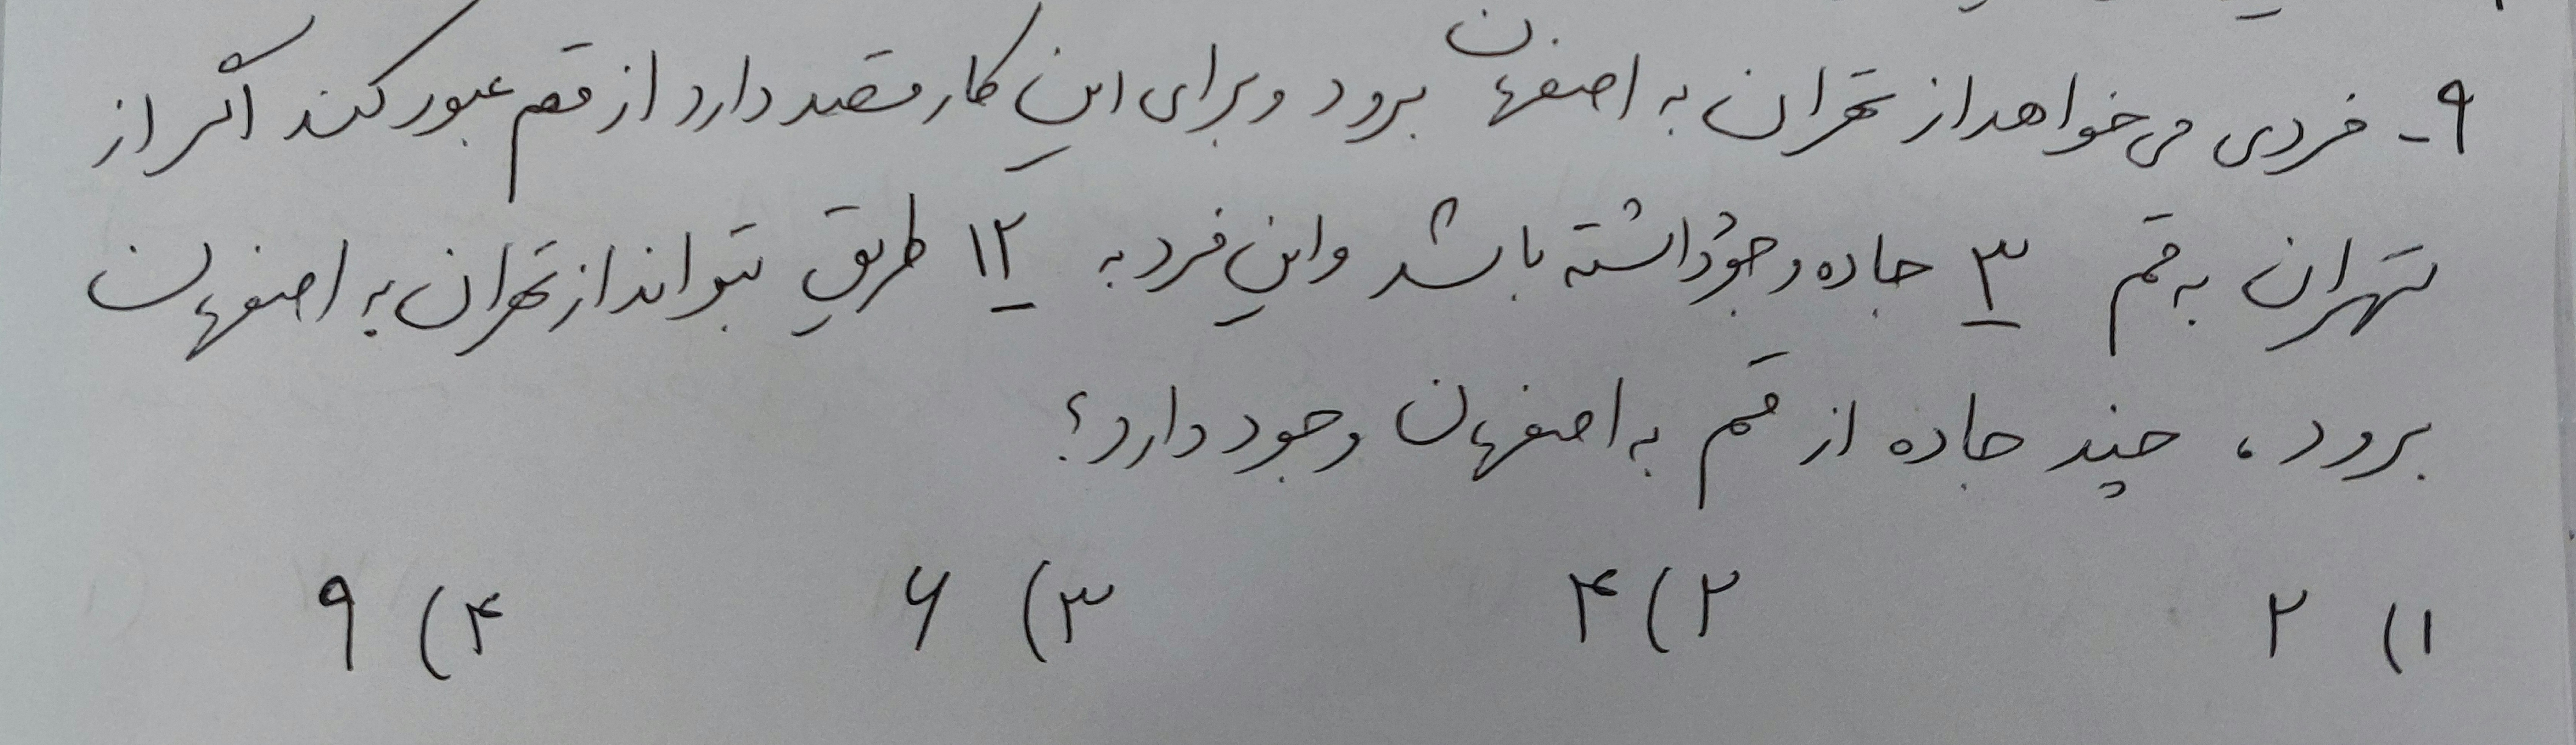 ۹- فردی می‌خواهد از تهران به اصفهان برود و برای این کار قصد دارد از قم عبور کند اگر از
تهران به قم ۳ جاده وجود داشته باشد و این فرد به ۱۲ طریق بتواند از تهران به اصفهان
برود، چند جاده از قم به اصفهان وجود دارد؟
۱) ۲ ۲) ۴ ۳) ۶ ۴) ۹